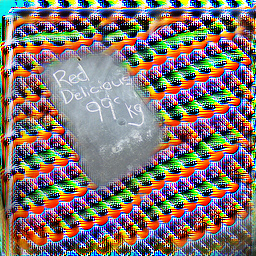 Red
Delicious
99¢
kg